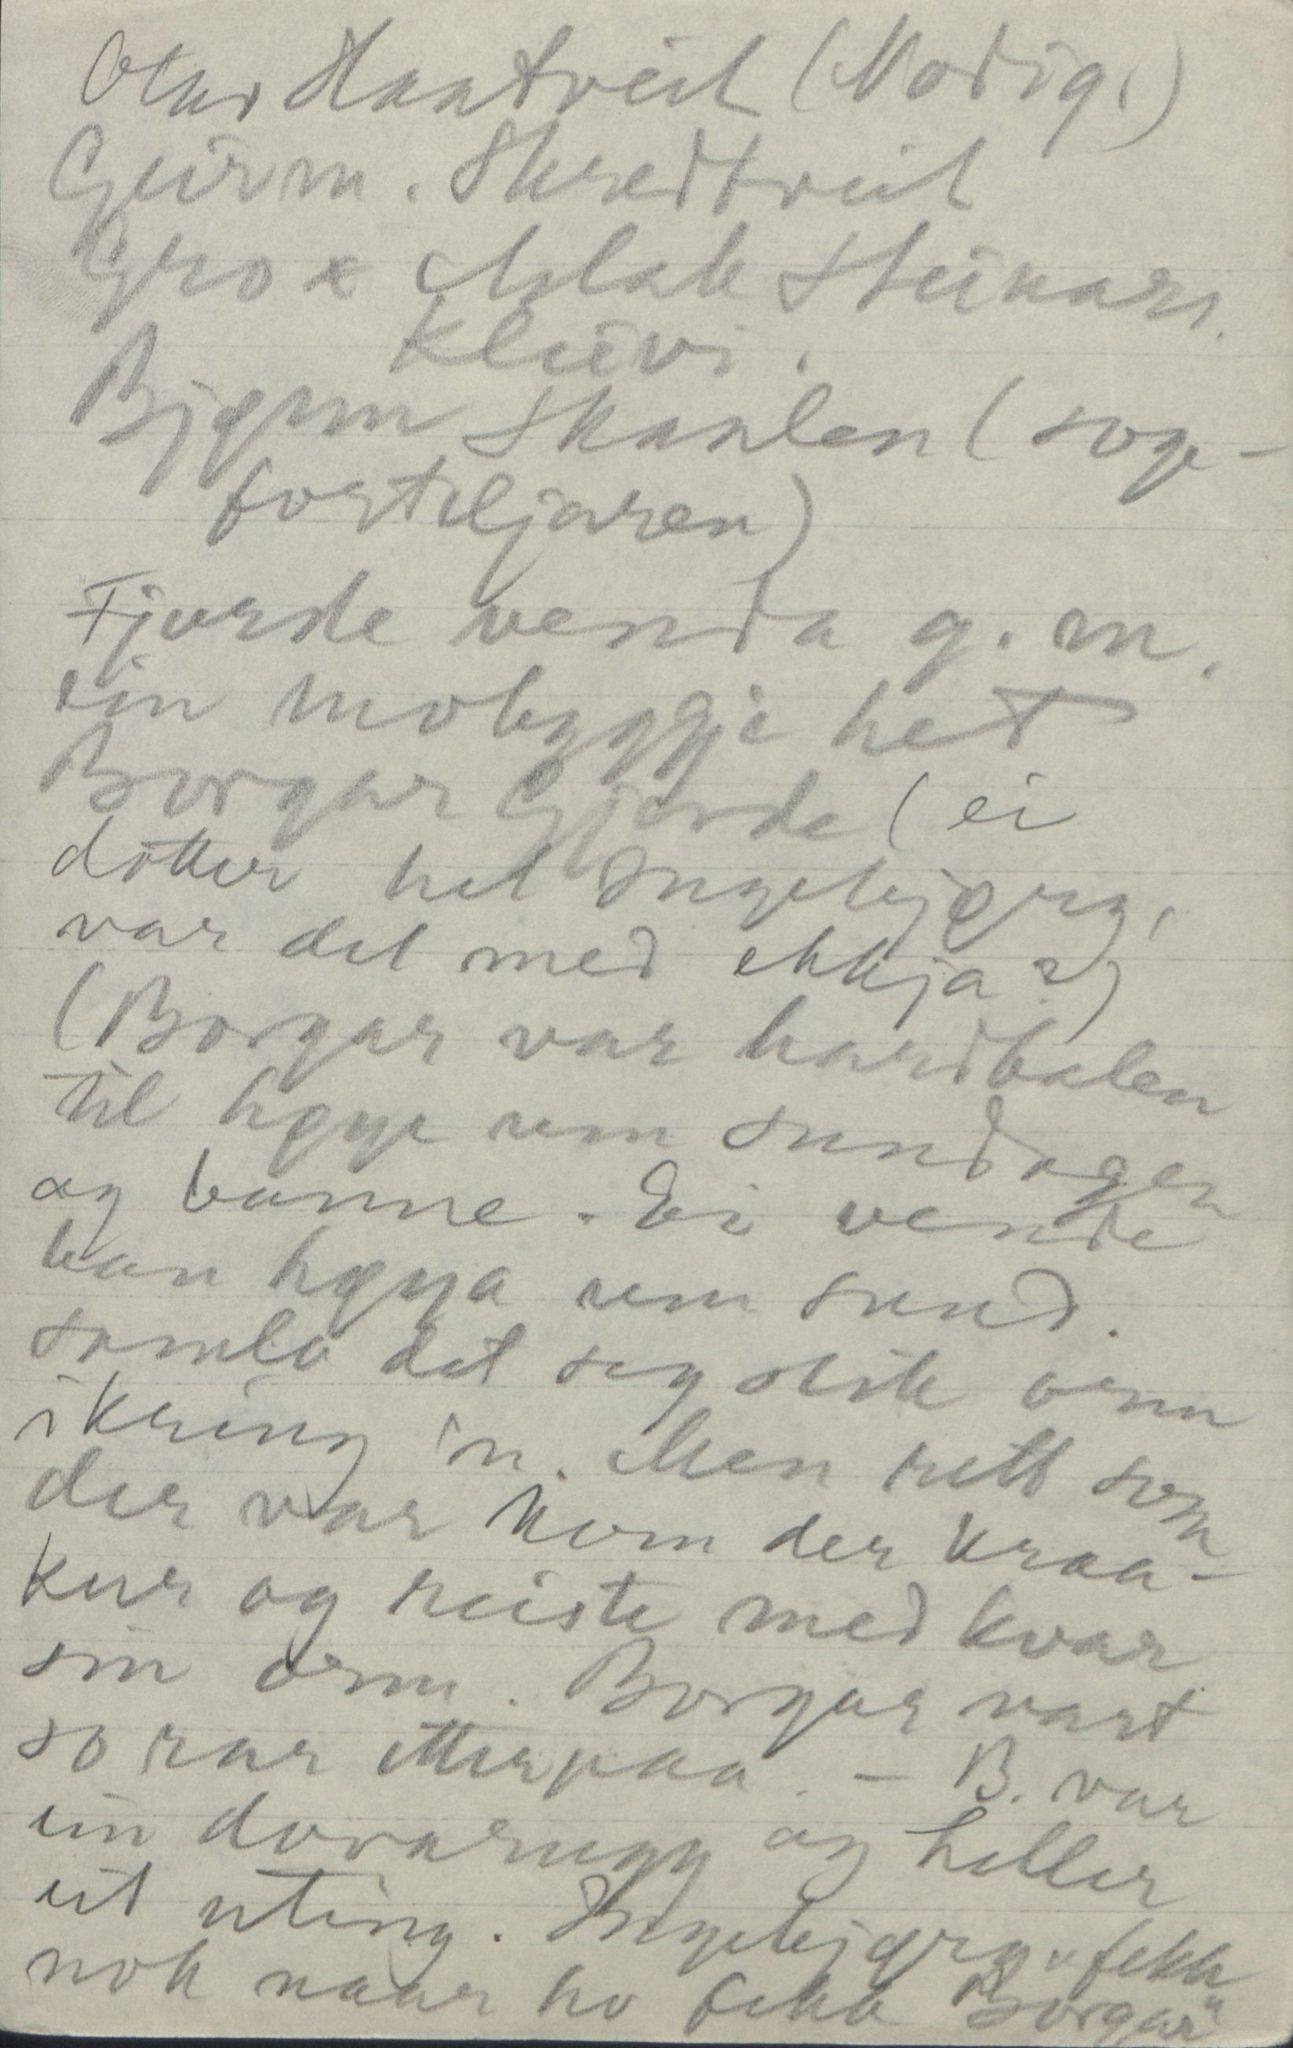 Olav Haatveit (Modig.)
Geirm. Skredtveit
Gro x Aslak Steinars.
Kleivi.
Bjørn Skaalen (soge-
forteljaren)
Fjorde venda g. m.
ein mobyggje het
Borgar Gjerde (ei
dotter het Ingebjørg,
var det med ekkja?)
(Borgar var hardbalen
til høye um sundagen
og banne. Ei vende
han høya um sund.
samla det seg slik orm
ikring 'n. Men rett som
der var kom der kraa-
kur og reiste med kvar
sin orm. Borgar vart
so rar etterpaa. – B. var
ein dovarugg og heller
eit uting. Ingebjørg "fekk
nok naar ho fekk Borgar"